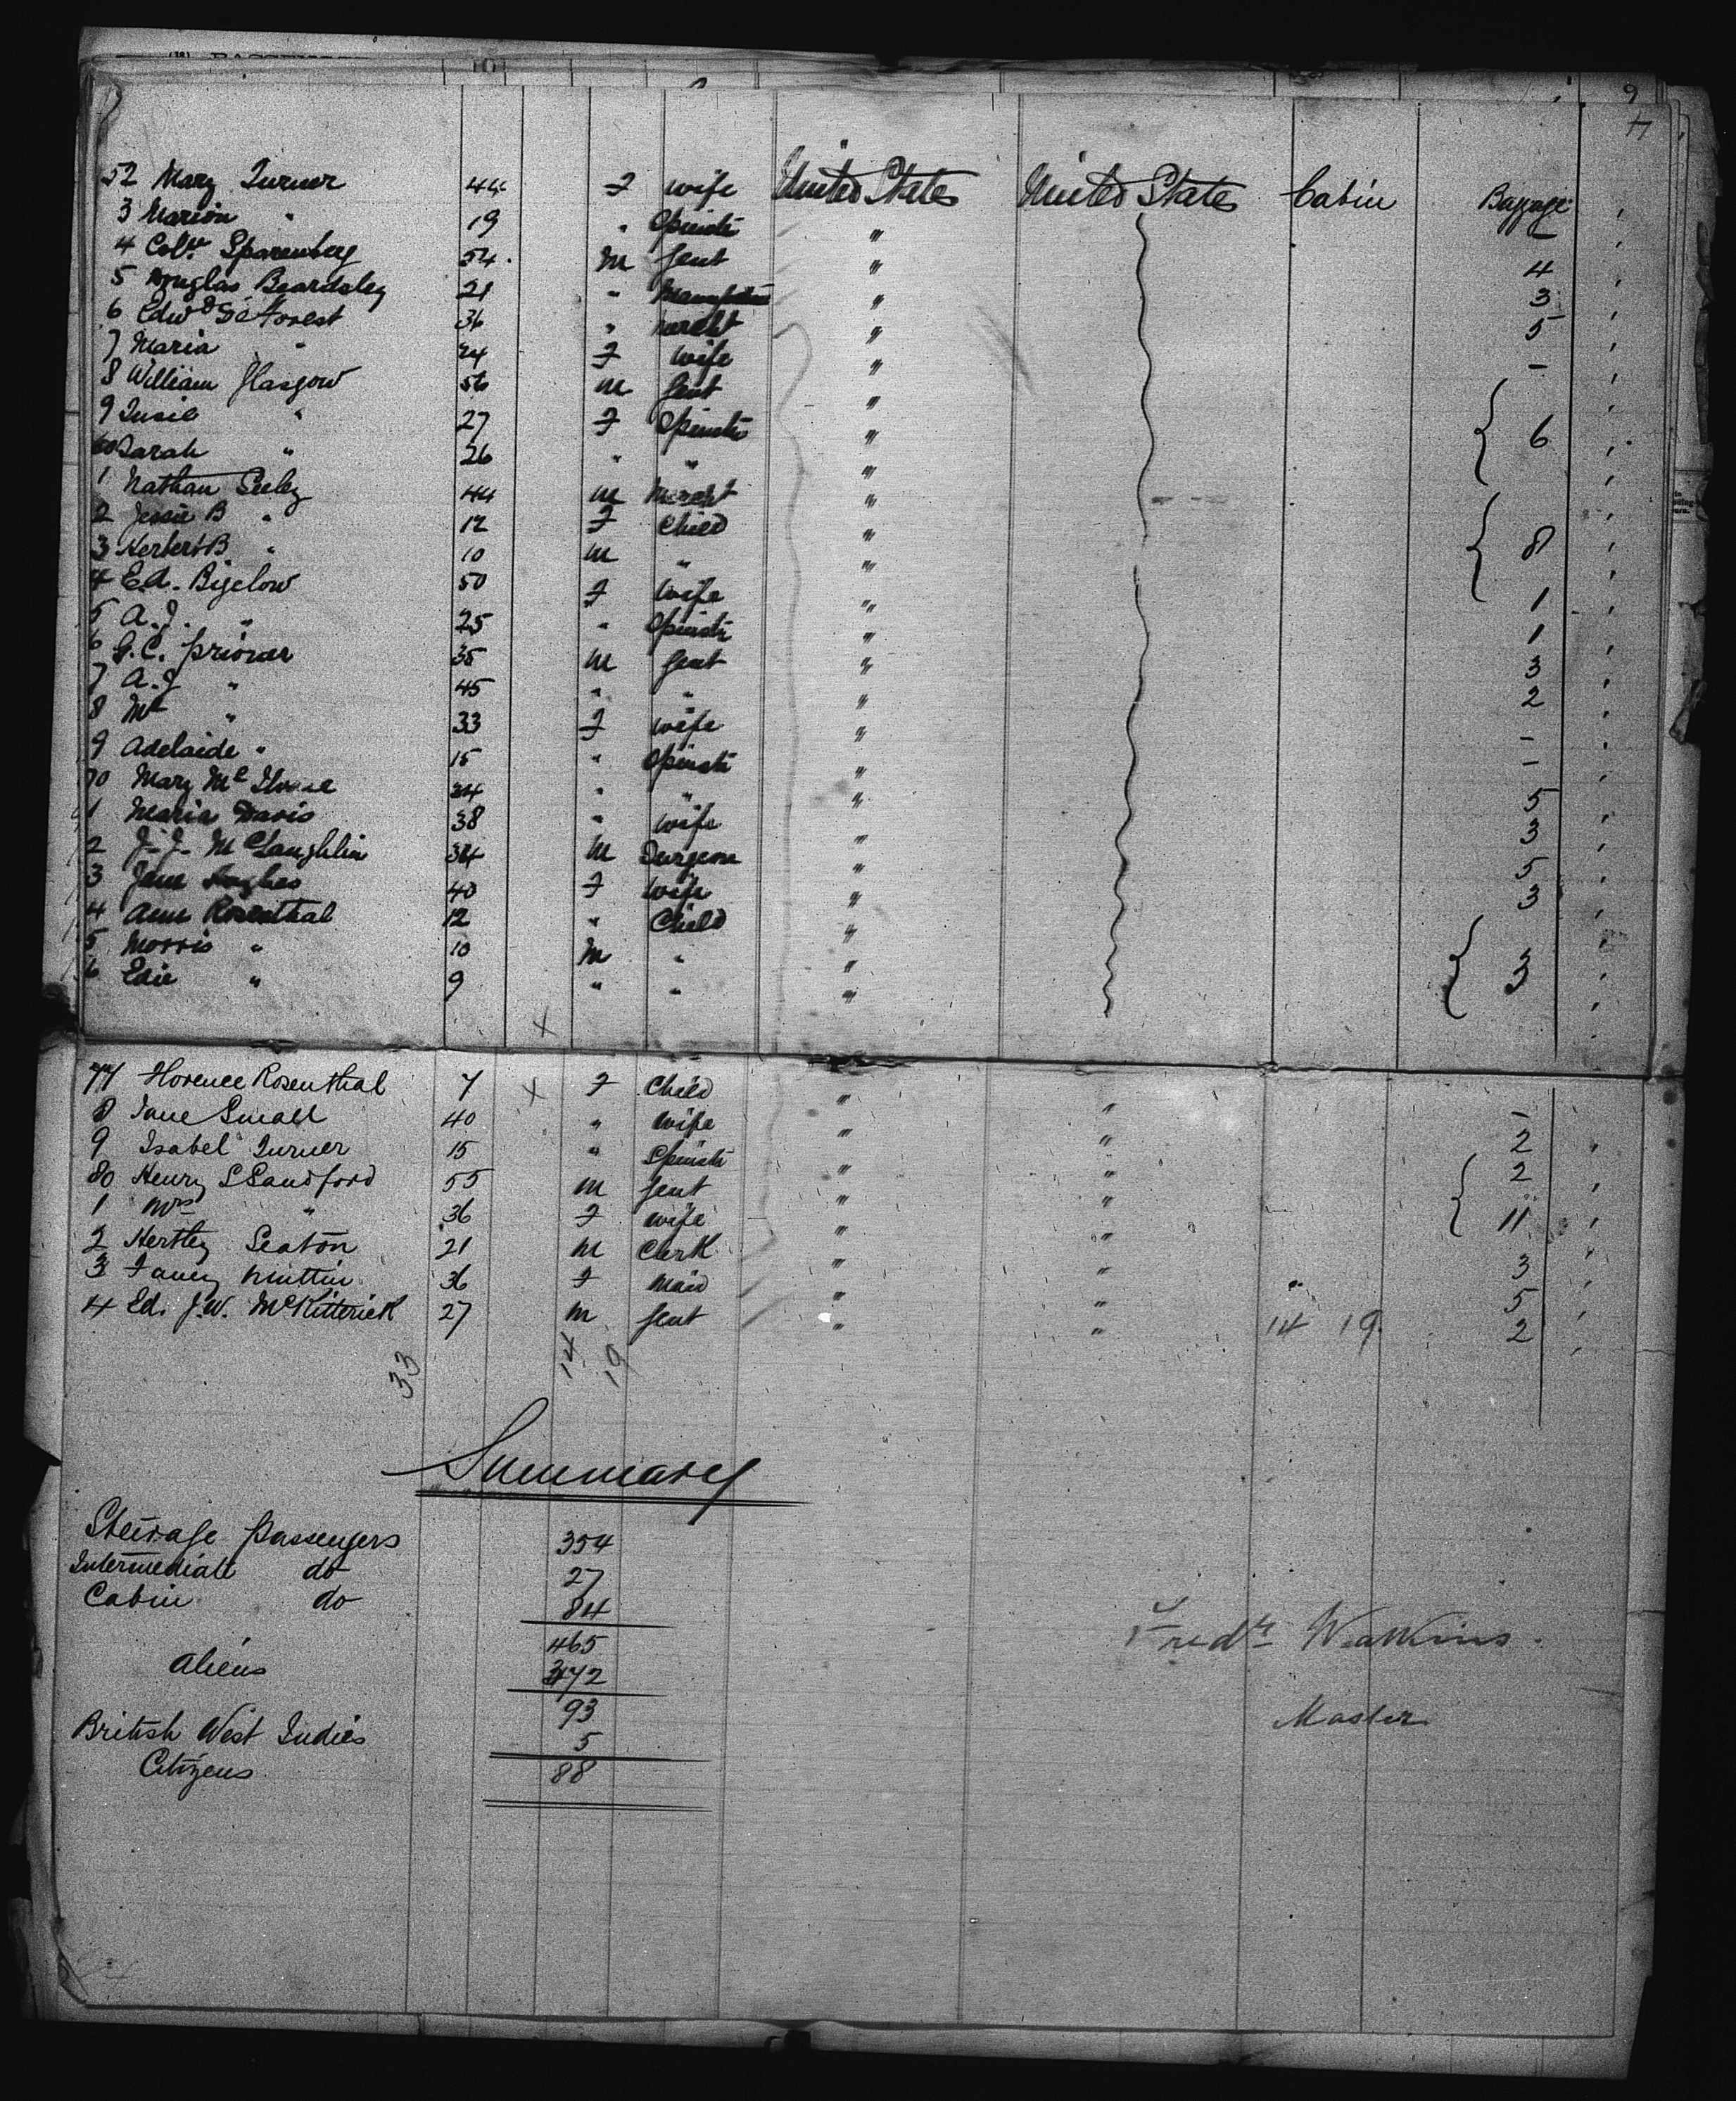 52 Mary Turner 44 F wife United States United States Cabin Baggage
3 Marion " 19 " Spinstr " –
4 Colr. Sparenberg 54 M Gent " 4
5 Douglas Beardsley 21 " " 3
6 Edwd De Forest 36 " Mercht " 5
7 Maria " 24 F Wife " –
8 William Glasgow 56 M Gent "
9 Susie " 27 F Spinstr " 6
60 Sarah " 26 " " "
1 Nathan Seeley 44 M Mercht "
2 Jessie B " 12 F Child " 8
3 Herbert B " 10 M " "
4 E.A. Bigelow 50 F Wife " 1
5 A.J. " 25 " Spinstr " 1
6 G.C. Prioner 35 M Gent " 3
7 A.J " 45 " " " 2
8 Mrs " 33 F Wife " –
9 Adelaide " 15 " Spinstr " –
70 Mary Mc 24 " " " 5
1 Maria Davis 38 " Wife " 3
2 J.J. McLaughlin 34 M Surgeon " 5
3 Jane Hughes 40 F Wife " 3
4 Ann Rosenthal 12 " Child "
5 Morris " 10 M " " 3
6 Edie " 9 " " "
X
77 Florence Rosenthal 7 X F Child " " –
8 Jane Small 40 " Wife " " 2
9 Isabel Turner 15 " Spinstr " " 2
80 Henry S Sandford 55 M Gent " "
1 Mrs " 36 F Wife " " 11
2 Hertley Seaton 21 M Clerk " " 3
3 Fanny 36 F Maid " " " 5
4 Ed. J.W. McKitterick 27 M Gent " " 14 19 2
33 14 19
Summary
Steerage Passengers 354
Intermediate do 27
Cabin do 84
465
Aliens 372
93
British West Indies 5
Citizens 88
Fredk Watkins
Master